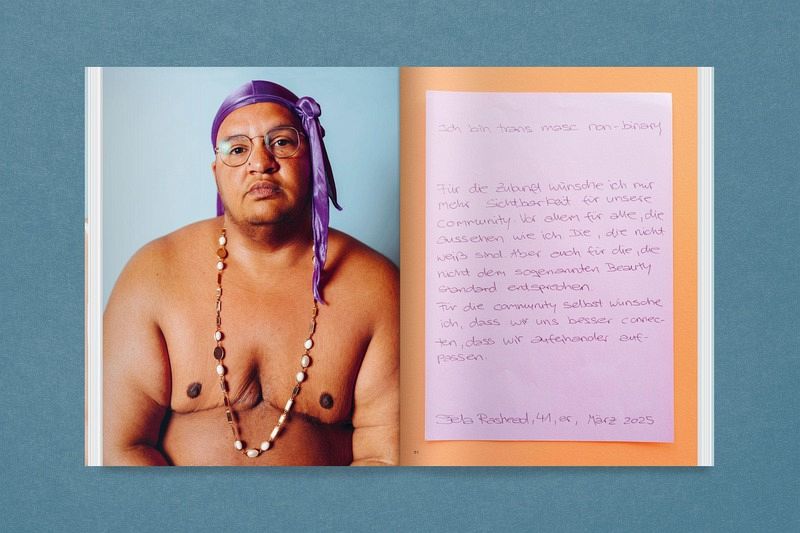 Ich bin trans masc non-binary
Für die Zukunft wünsche ich mir
mehr Sichtbarkeit für unsere
Community. Vor allem für alle, die
aussehen wie ich. Die, die nicht
weiß sind. Aber auch für die, die
nicht dem sogenannten Beauty
Standard entsprechen.
Für die community selbst wünsche
ich, dass wir uns besser connec-
ten, dass wir aufeinander auf-
passen.
Rasheed, 41, er, März 2025